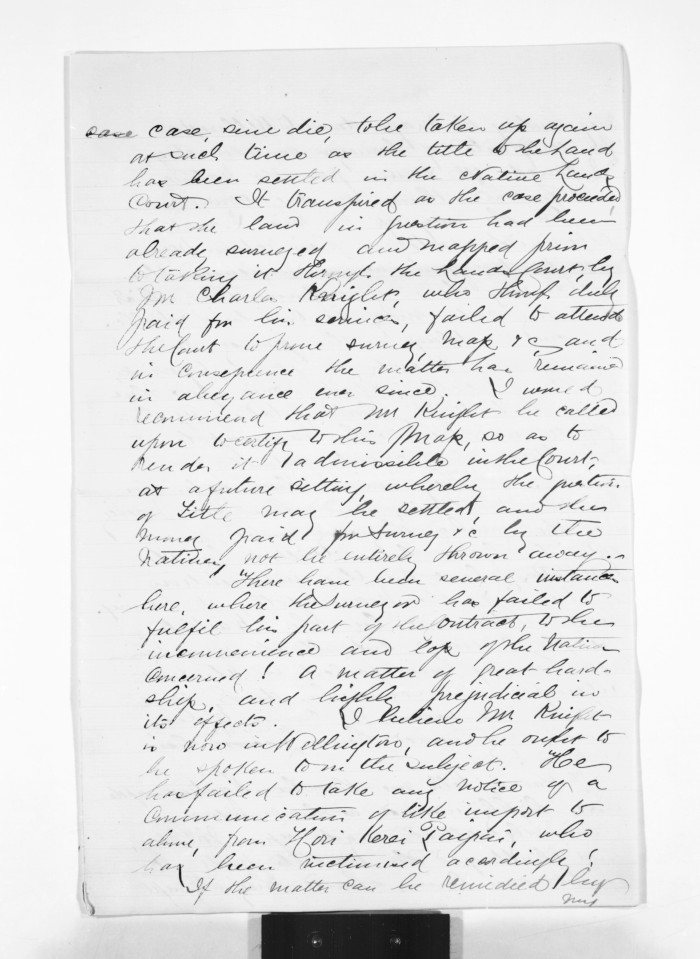 case case, sine die, to be taken up again
at such time as the title to the Land
has been settled in the Native Lands
Court. It transpired as the case proceeded,
that the land in question had been
already surveyed and mapped prior
to taking it through the Lands Court, by
Mr Charles Knight, who though duly
paid for his services, failed to attend
the Court to prove survey, map &c, and
in consequence the matter has remained
in abeyance ever since. I would
recommend that Mr Knight be called
upon to certify to his Map, so as to
render it admissible in the Court,
at a future sitting, whereby the question
of Title may be settled, and the
money paid for Survey &c by the
Natives, not be entirely thrown away.
There have been several instances
here, where the Surveyor has failed to
fulfil his part of the Contract, to the
inconvenience and loss of the Natives
Concerned! A matter of great hard-
ship, and highly prejudicial in
its effects. I believe Mr Knight
is now in Wellington, and he ought to
be spoken to on the subject. He
has failed to take any notice of a
Communication of like import to
above, from Hori Kerei Paipai, who
has been victimised acordingly!
If the matter can be remidied by